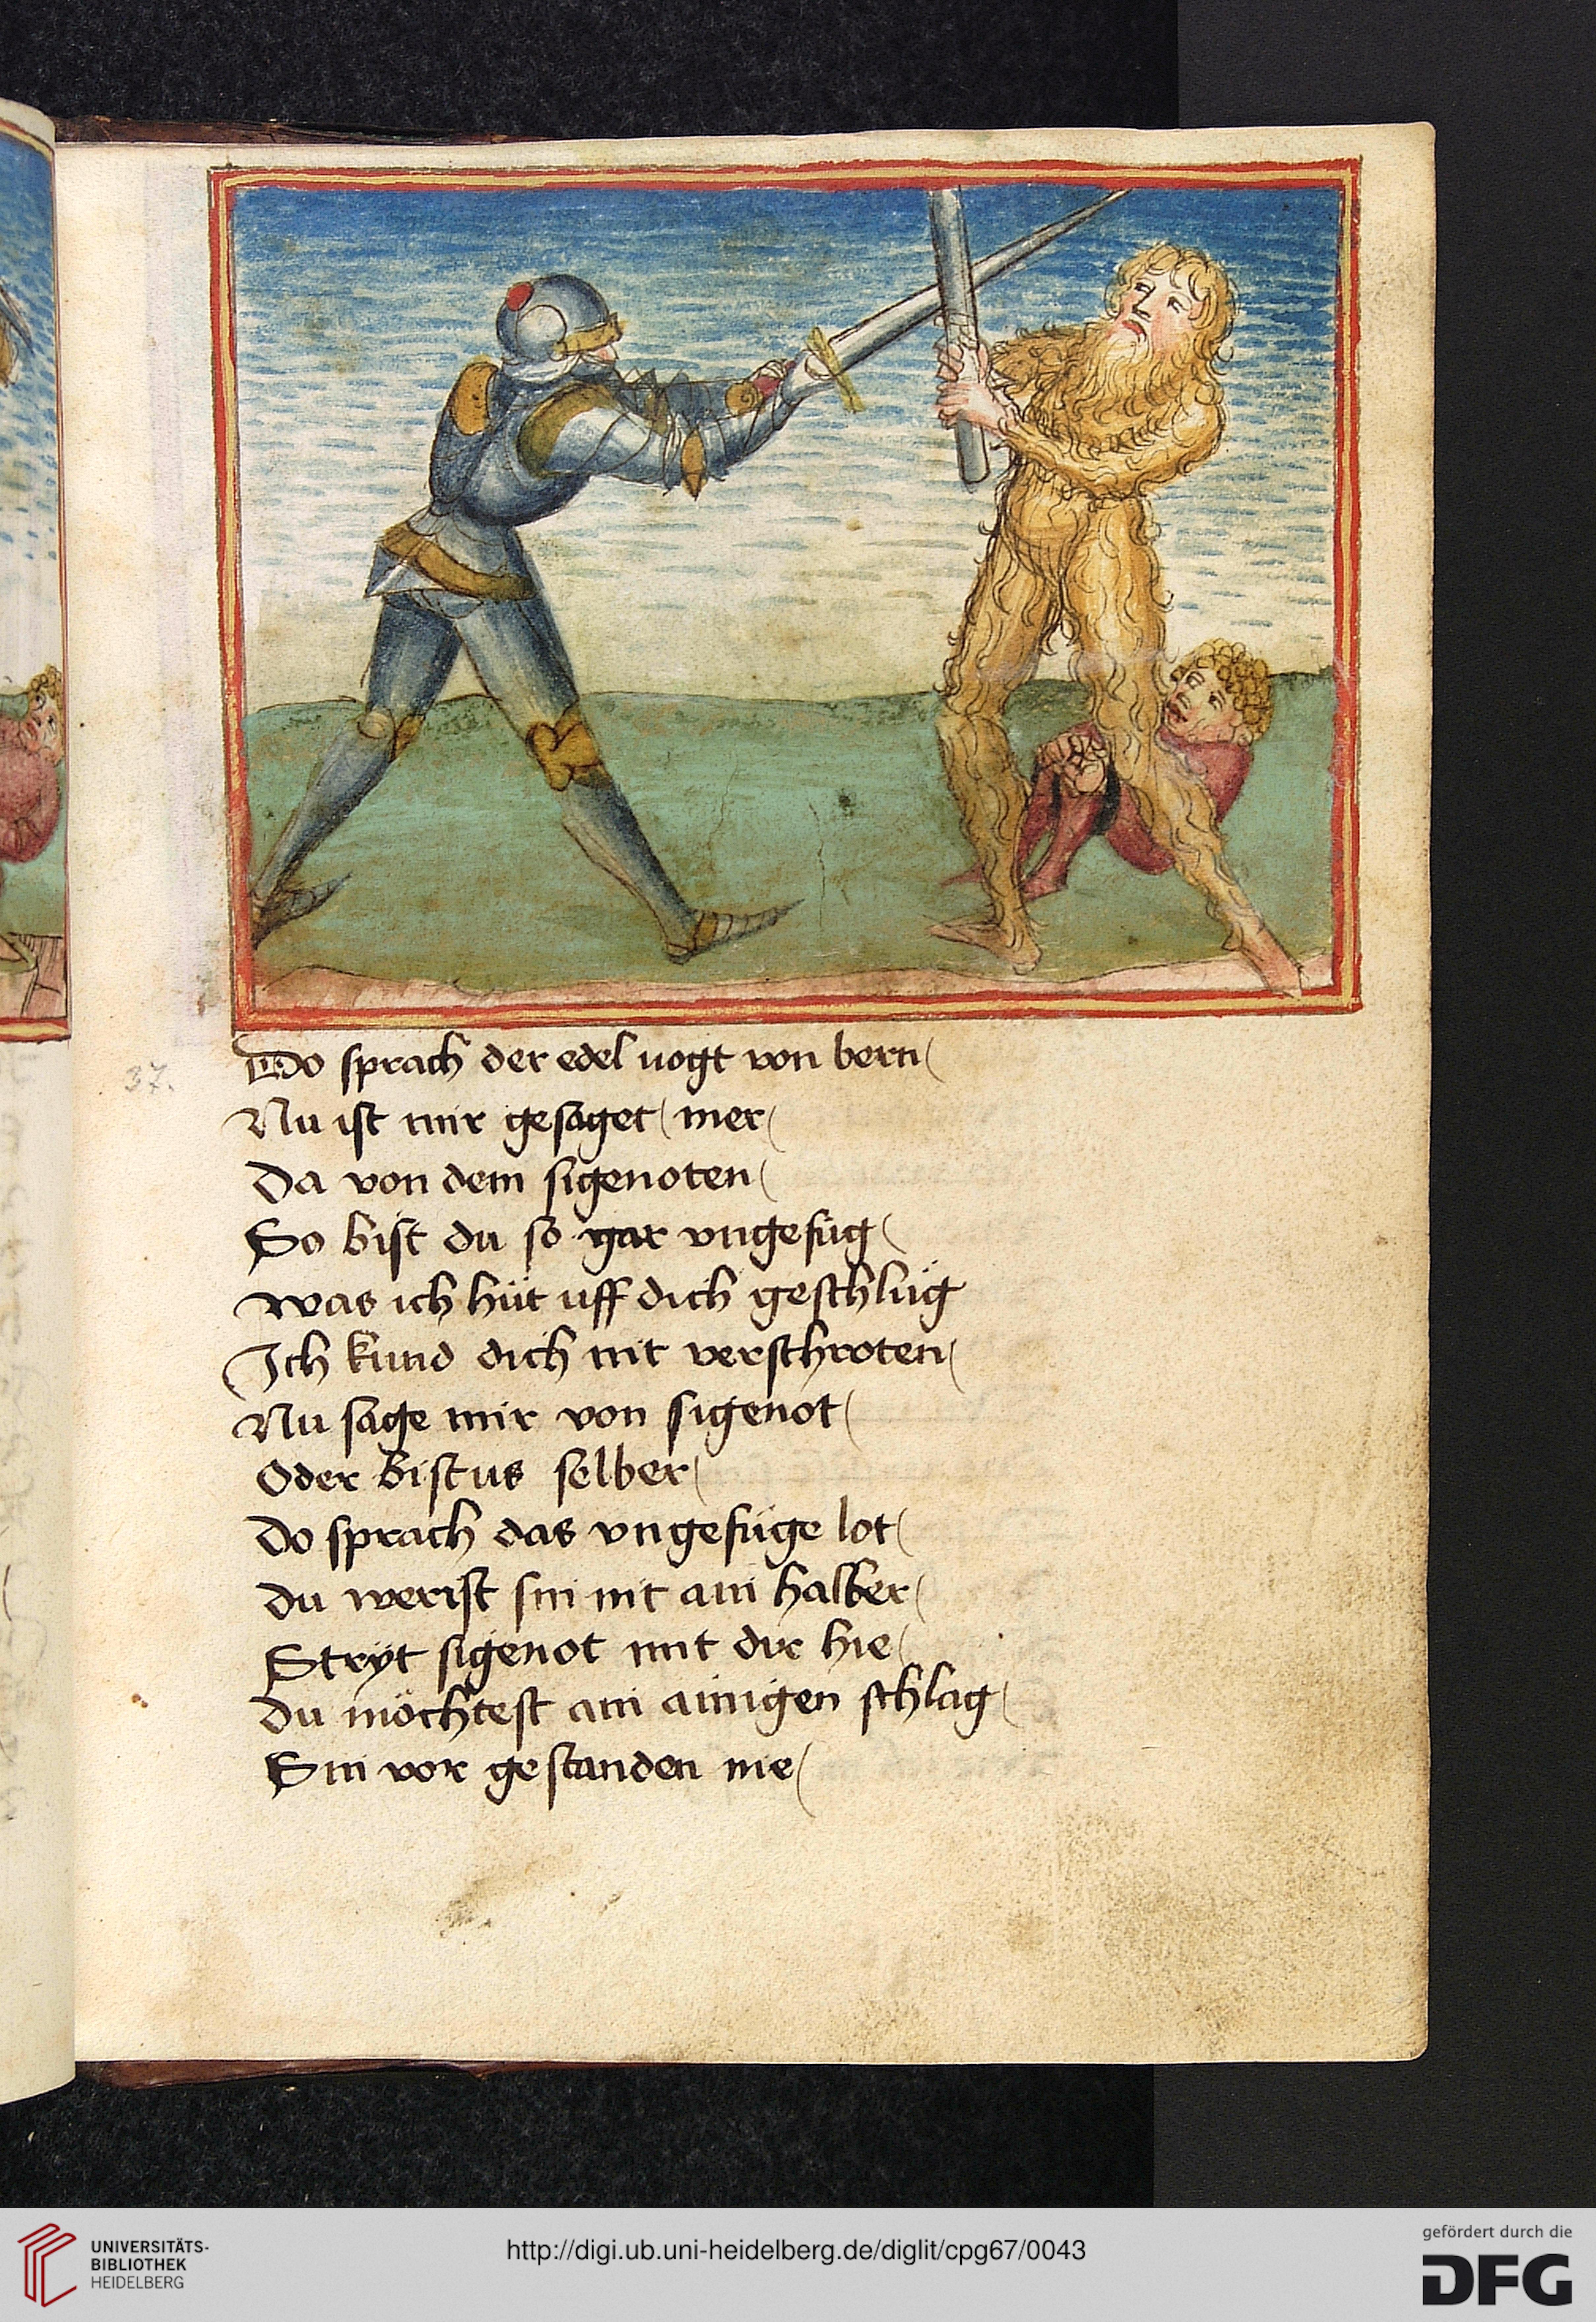 Do sprach der edel uogt von bern
37.
Nu ist mir gesaget mer
Da von dem sigenoten
So bist du so gar vngefüg
Was ich hüt uff dich geschlüg
Ich kund dich nit verschroten
Nu sage mir von sigenot
Oder bistus selber
Do sprach das vngefüge lot
Du werist sin nit ain halber
Stryt sigenot mit dir hie
Du möchtest ain ainigen schlag
Sin vor gestanden nie
UNIVERSITÄTS-
BIBLIOTHEK
HEIDELBERG
http://digi.ub.uni-heidelberg.de/diglit/cpg67/0043
gefördert durch die
DFG